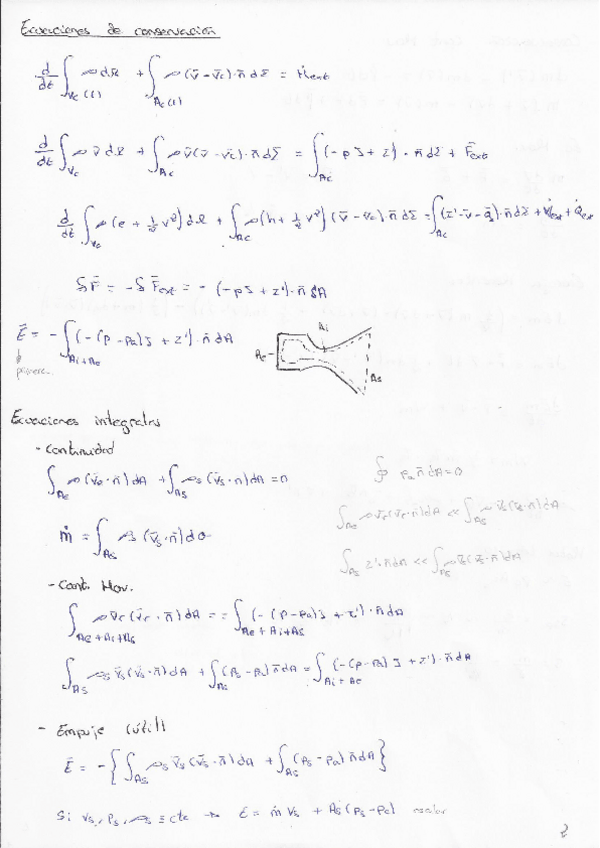 Ecuaciones de conservación
d/dt ∫_{Vc(t)} ρ dΩ + ∫_{Ac(t)} ρ (v̄ - v̄c)·n̄ dΣ = ṁext
d/dt ∫_{Vc} ρ v̄ dΩ + ∫_{Ac} ρ v̄ (v̄ - v̄c)·n̄ dΣ = ∫_{Ac} (-p J + τ')·n̄ dΣ + F̄ext
d/dt ∫_{Vc} ρ (e + ½ v²) dΩ + ∫_{Ac} ρ (h + ½ v²) (v̄ - v̄c)·n̄ dΣ = ∫_{Ac} (τ'·v̄ - q̄)·n̄ dΣ + Ẇext + Q̇ext
δF̄ = -δF̄ext = - (-p J + τ')·n̄ δA
Ē = - ∫_{Ai+Ae} (-(p - pa) J + τ')·n̄ dA
Ai
Ae
As
Ecuaciones integrales
- Continuidad
∫_{Ae} ρ (v̄e·n̄) dA + ∫_{As} ρs (v̄s·n̄) dA = 0
∮ pa n̄ dA = 0
∫_{Ae} ρ v̄e (v̄e·n̄) dA << ∫_{As} ρ v̄s (v̄s·n̄) dA
ṁ = ∫_{As} ρs (v̄s·n̄) dσ
∫_{As} τ'·n̄ dA << ∫_{As} ρ v̄s (v̄s·n̄) dA
- Cant. Mov.
∫_{Ae+Ai+As} ρ v̄c (v̄c·n̄) dA = = ∫_{Ae+Ai+As} (-(p - pa) J + τ')·n̄ dA
∫_{As} ρs v̄s (v̄s·n̄) dA + ∫_{As} (ps - pa) n̄ dA = ∫_{Ai+Ae} (-(p - pa) J + τ')·n̄ dA
- Empuje (útil)
Ē = - { ∫_{As} ρs v̄s (v̄s·n̄) dA + ∫_{As} (ps - pa) n̄ dA }
Si vs, ps, ρs ≡ cte → E = ṁ vs + As (ps - pa) escalar